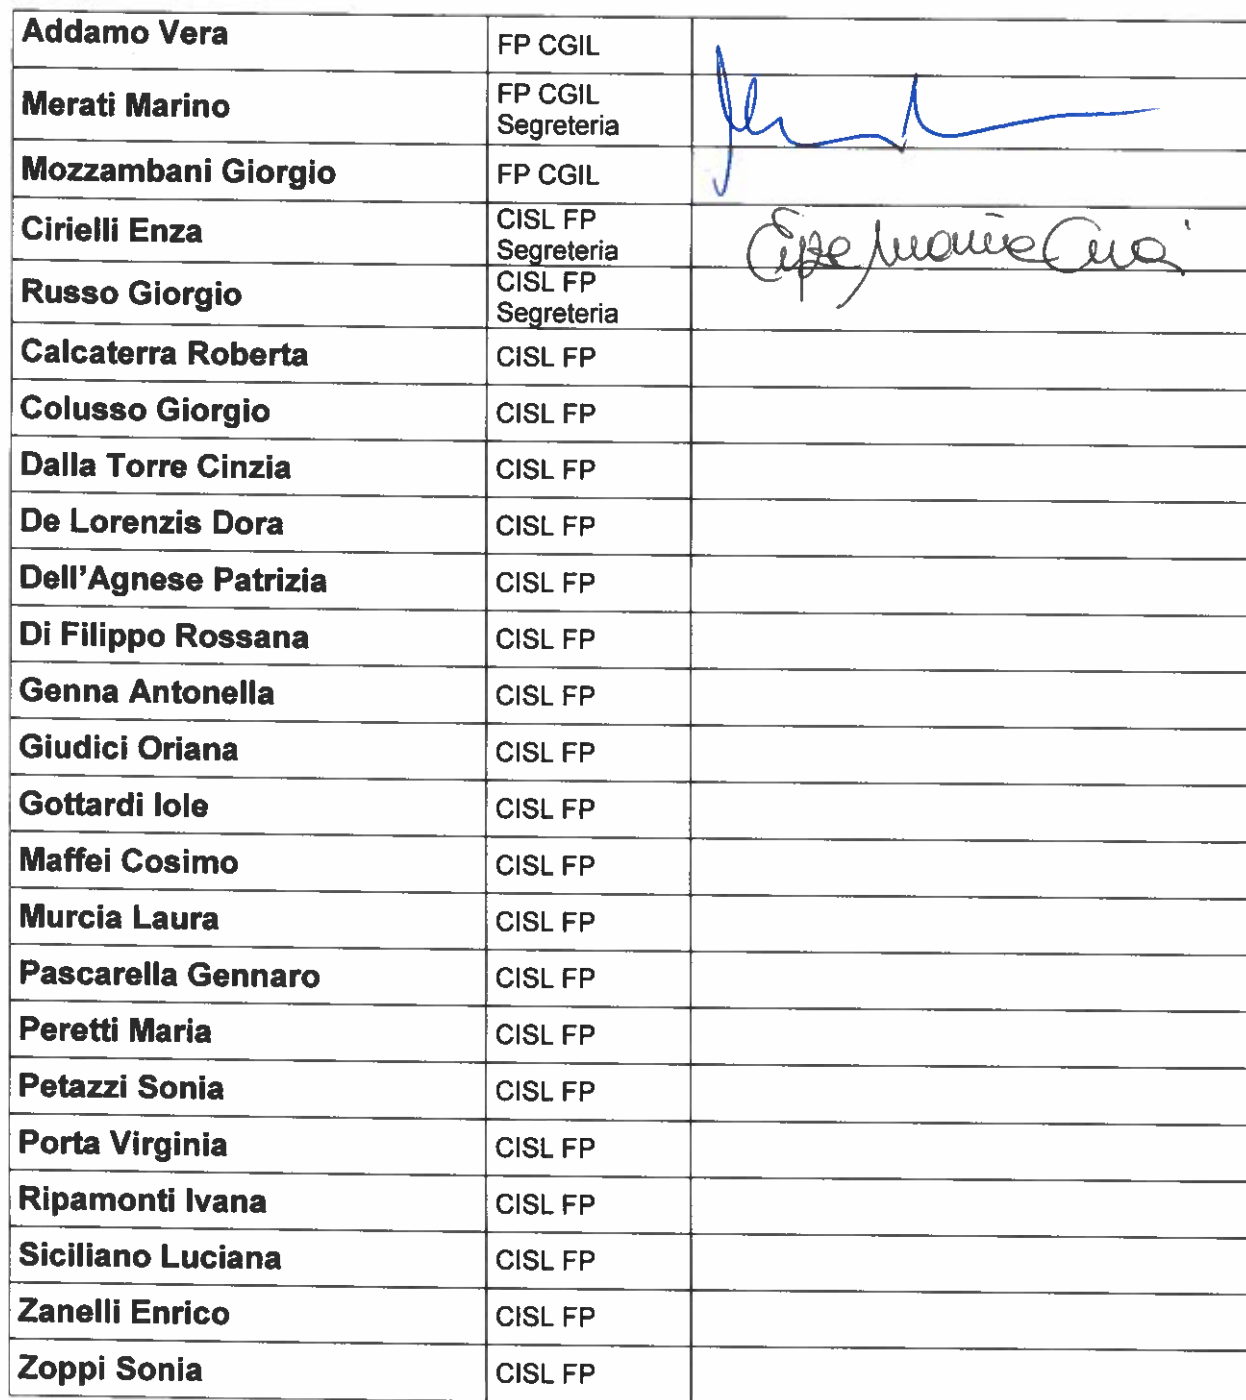 Addamo Vera FP CGIL
Merati Marino FP CGIL
Segreteria
Mozzambani Giorgio FP CGIL
Cirielli Enza CISL FP
Segreteria
Russo Giorgio CISL FP
Segreteria
Calcaterra Roberta CISL FP
Colusso Giorgio CISL FP
Dalla Torre Cinzia CISL FP
De Lorenzis Dora CISL FP
Dell'Agnese Patrizia CISL FP
Di Filippo Rossana CISL FP
Genna Antonella CISL FP
Giudici Oriana CISL FP
Gottardi Iole CISL FP
Maffei Cosimo CISL FP
Murcia Laura CISL FP
Pascarella Gennaro CISL FP
Peretti Maria CISL FP
Petazzi Sonia CISL FP
Porta Virginia CISL FP
Ripamonti Ivana CISL FP
Siciliano Luciana CISL FP
Zanelli Enrico CISL FP
Zoppi Sonia CISL FP